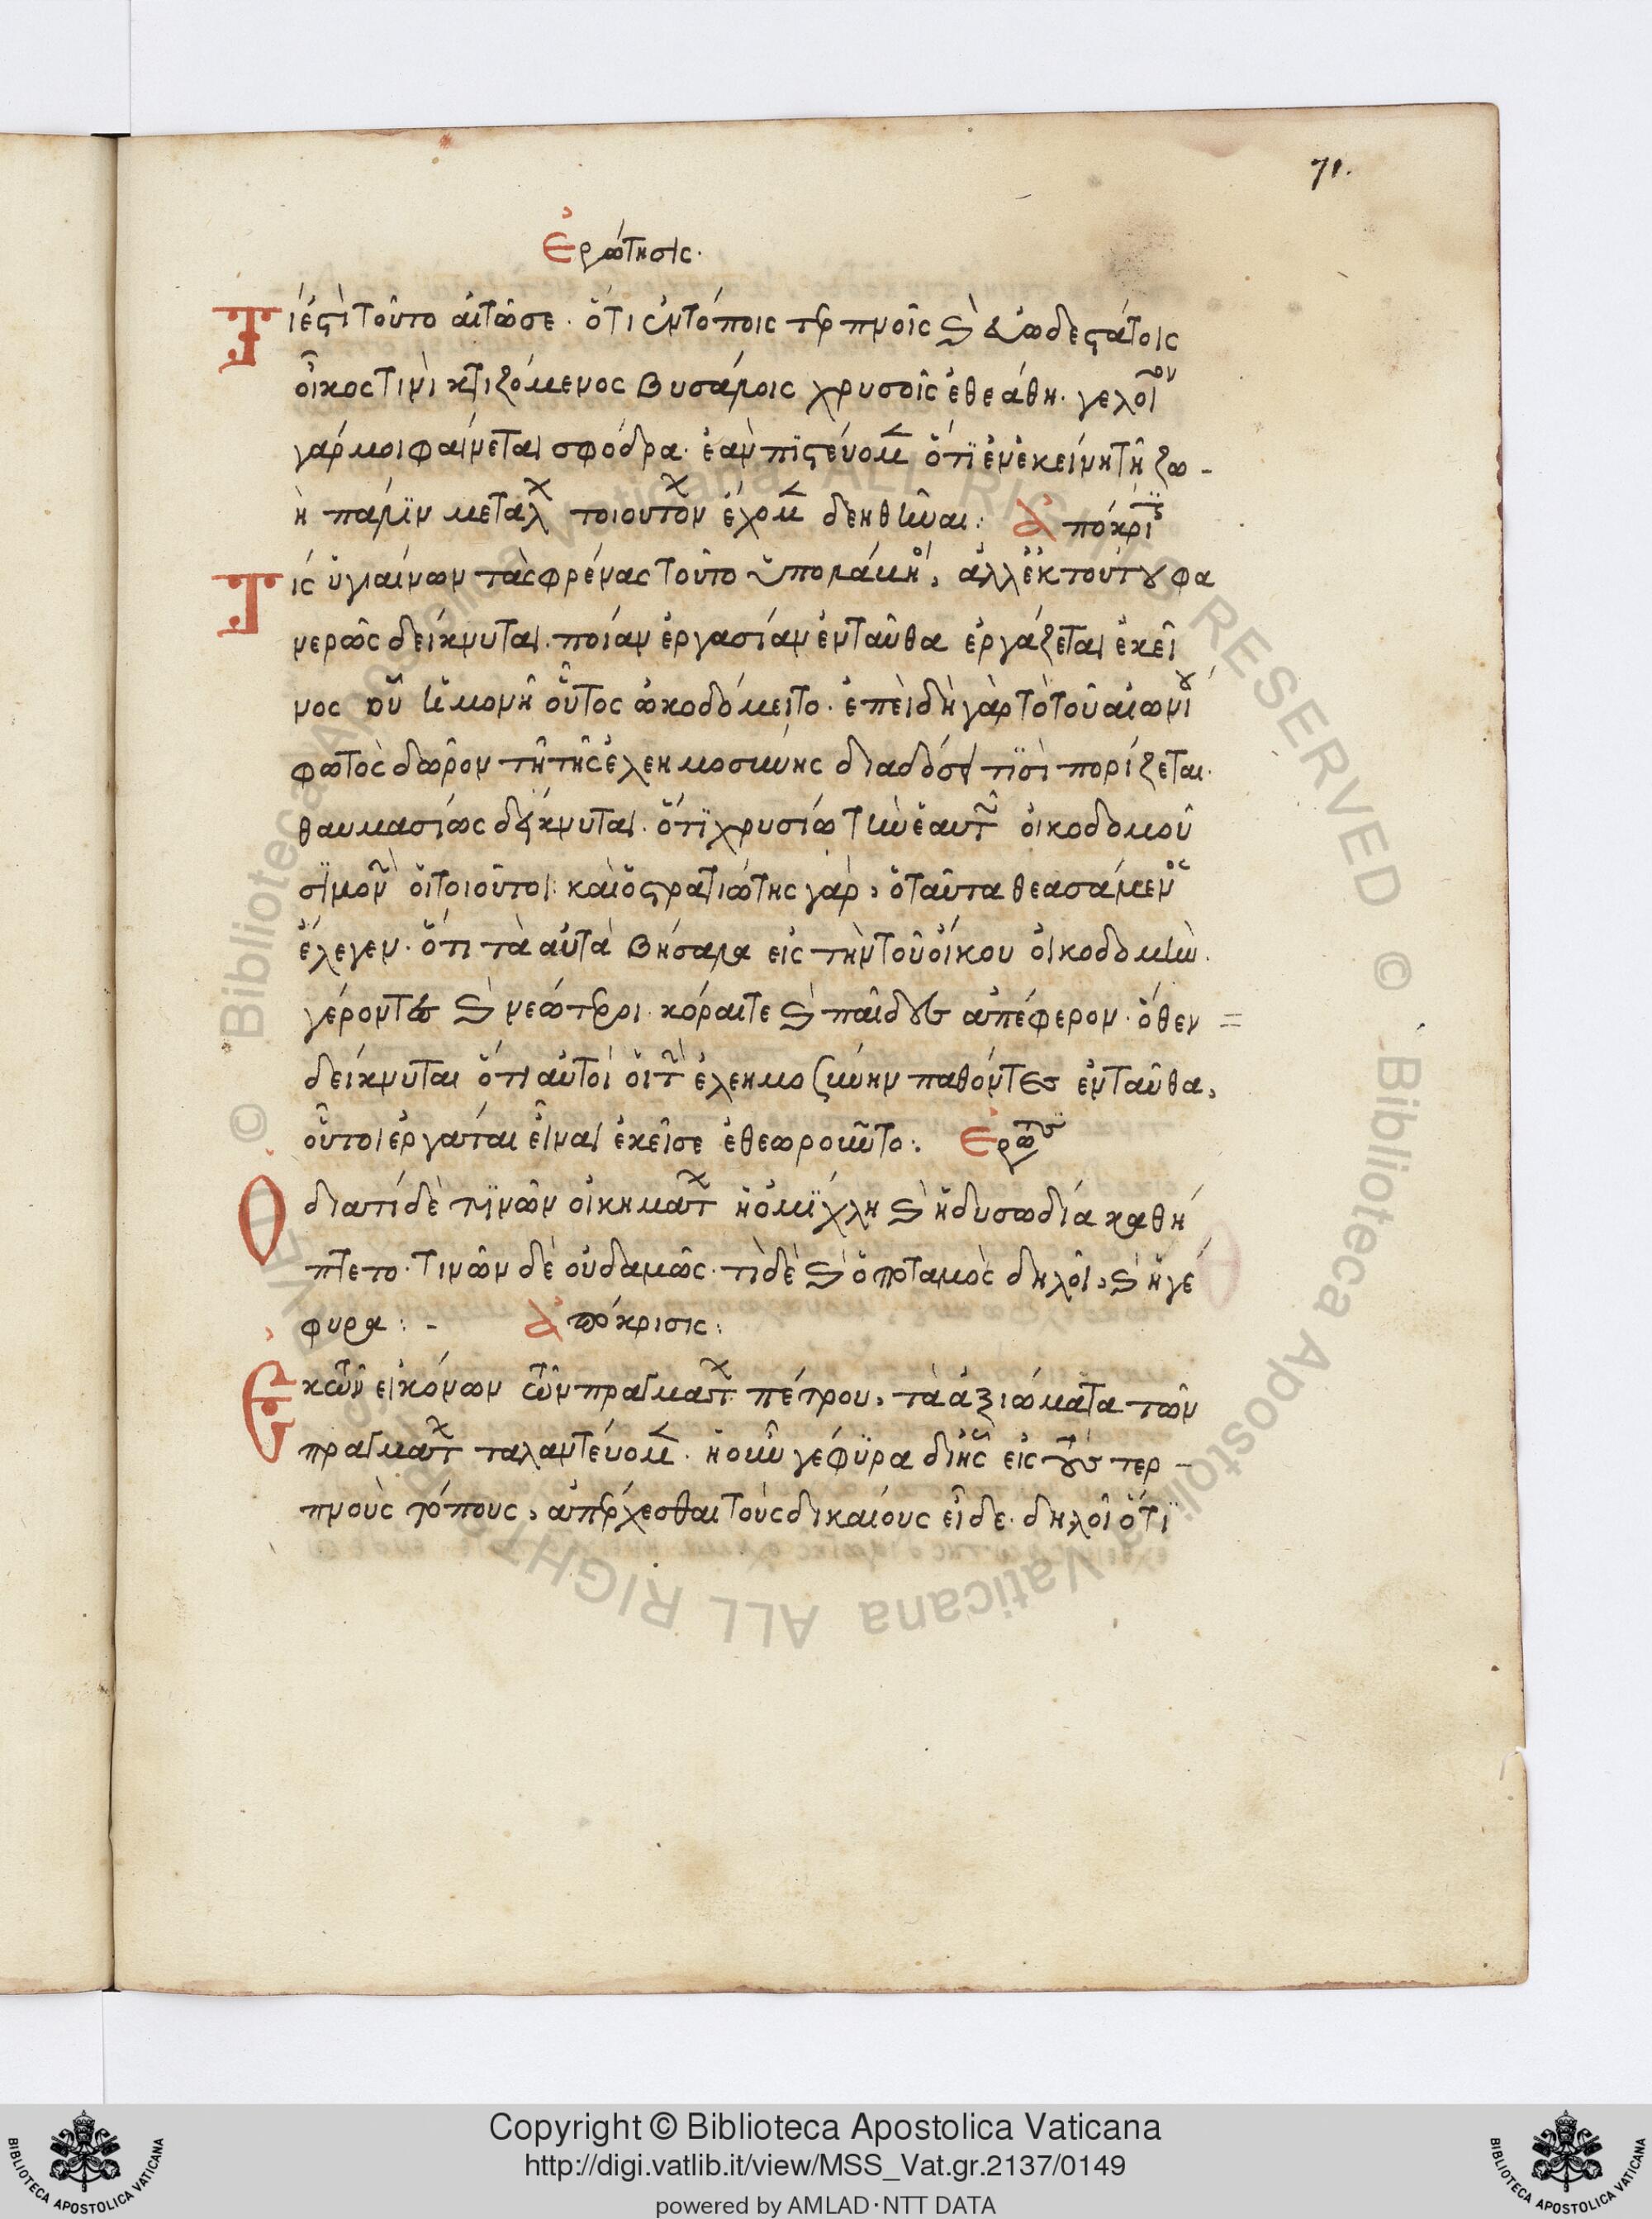 71.
Ἐρώτησις.
Τί ἐστὶ τοῦτο αἰτῶ σε. ὅτι ἐν τόποις τερπνοῖς καὶ εὐωδεστάτοις
οἶκος τινὶ κτιζόμενος βυσάλοις χρυσοῖς ἐθεάθη. γελοῖον
γάρ μοι φαίνεται σφόδρα. ἐὰν πιστεύομεν ὅτι ἐν ἐκείνη τῆ ζω-
ῆ πάλιν μετάλλων τοιούτων ἔχομεν δεηθῆναι: Ἀπόκρισις
Τίς ὑγιαίνων τὰς φρένας τοῦτο ὑπολάβη, ἀλλ' ἐκ τούτου φα
νερῶς δείκνυται. ποίαν ἐργασίαν ἐνταῦθα ἐργάζεται ἐκεῖ
νος οὗ ἡ μονὴ οὗτος ὠκοδόμειτο. ἐπειδὴ γὰρ τὸ τοῦ αἰωνίου
φωτὸς δῶρον τῆ τῆς ἐλεημοσύνης διαδόσει τισὶ πορίζεται.
θαυμασίως δείκνυται. ὅτι χρυσίω τὴν ἑαυτῶν οἰκοδομοῦ
σι μονὴν οἱ τοιοῦτοι: καὶ ὁ στρατιώτης γὰρ, ὁ ταῦτα θεασάμενος
ἔλεγεν. ὅτι τὰ αὐτὰ βήσαλα εἰς τὴν τοῦ οἴκου οἰκοδομήν.
γέροντες καὶ νεώτεροι. κόραι τε καὶ παῖδες ἀπέφερον. ὅθεν =
δείκνυται ὅτι αὐτοὶ οἱ τὴν ἐλεημοσύνην παθόντες ἐνταῦθα,
οὗτοι ἐργάται εἶναι ἐκεῖσε ἐθεωροῦντο: Ἐρώτησις
Ὁ διατί δὲ τινῶν οἰκημάτων ἡ ὀμίχλη καὶ ἡ δυσωδία καθή
πτετο. τινῶν δὲ οὐδαμῶς. τί δὲ καὶ ὁ ποταμὸς δηλοῖ, καὶ ἡ γέ
φυρα: - Ἀπόκρισις:
Ἐκ τῶν εἰκόνων τῶν πραγμάτων πέτρου, τὰ ἀξιώματα τῶν
πραγμάτων ταλαντεύομεν. ἡ οὖν γέφυρα δι' ἧς εἰς τοὺς τερ-
πνοὺς τόπους, ἀπέρχεσθαι τοὺς δικαίους εἶδε. δηλοῖ ὅτι
© Biblioteca Apostolica Vaticana ALL RIGHTS RESERVED © Biblioteca Apostolica Vaticana ALL RIGHTS RESERVED
Copyright © Biblioteca Apostolica Vaticana
http://digi.vatlib.it/view/MSS_Vat.gr.2137/0149
powered by AMLAD·NTT DATA
BIBLIOTECA APOSTOLICA VATICANA
BIBLIOTECA APOSTOLICA VATICANA